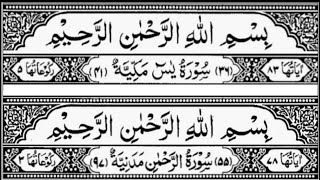 بِسْمِ اللهِ الرَّحْمٰنِ الرَّحِيْمِ
اٰيَاتُهَا ٨٣ (٣٦) سُوْرَةُ يٰسٓ مَكِّيَّةٌ (٤١) رُكُوْعَاتُهَا ٥
بِسْمِ اللهِ الرَّحْمٰنِ الرَّحِيْمِ
اٰيَاتُهَا ٧٨ (٥٥) سُوْرَةُ الرَّحْمٰنِ مَدَنِيَّةٌ (٩٧) رُكُوْعَاتُهَا ٣